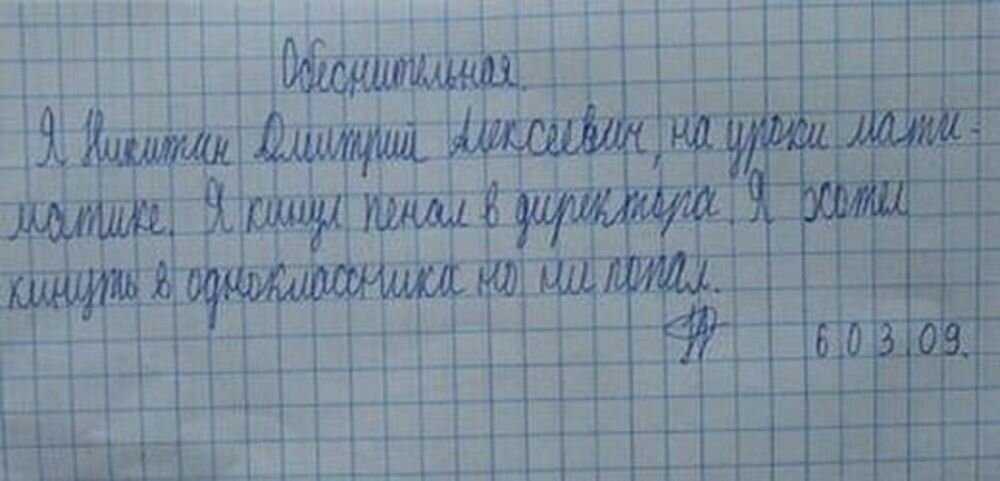 Обеснительная.
Я Никитин Дмитрий Алексеевич, на уроки мати-
матике. Я кинул пенал в директора. Я хотел
кинуть в одноклассника но ни попал.
6 03 09.